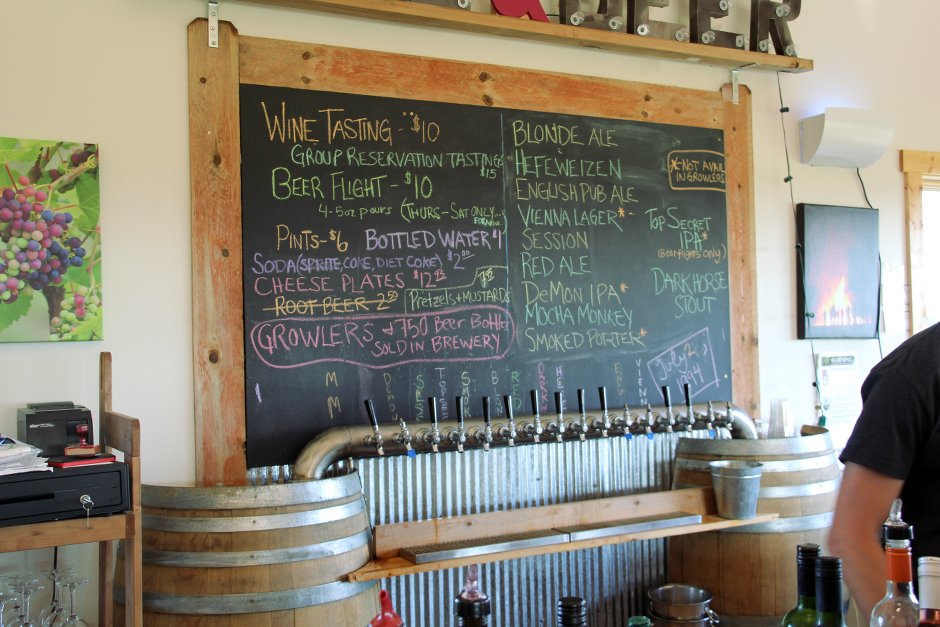 & BEER
WINE TASTING - $10
GROUP RESERVATION TASTINGS
$15
BEER FLIGHT - $10
4-5oz pours (THURS-SAT ONLY...
PINTS - $6 BOTTLED WATER $1
SODA (SPRITE, COKE, DIET COKE) $2.00
CHEESE PLATES $12.75
ROOT BEER 2.50
Pretzels + MUSTARDS
GROWLERS & 750 Beer Bottles
SOLD IN BREWERY
BLONDE ALE
HEFEWEIZEN
ENGLISH PUB ALE
VIENNA LAGER *
SESSION
RED ALE
DEMON IPA *
MOCHA MONKEY
SMOKED PORTER *
* - NOT AVAIL
IN GROWLERS
TOP SECRET
IPA *
(Beer flights only)
DARK HORSE
STOUT
July 21
1994